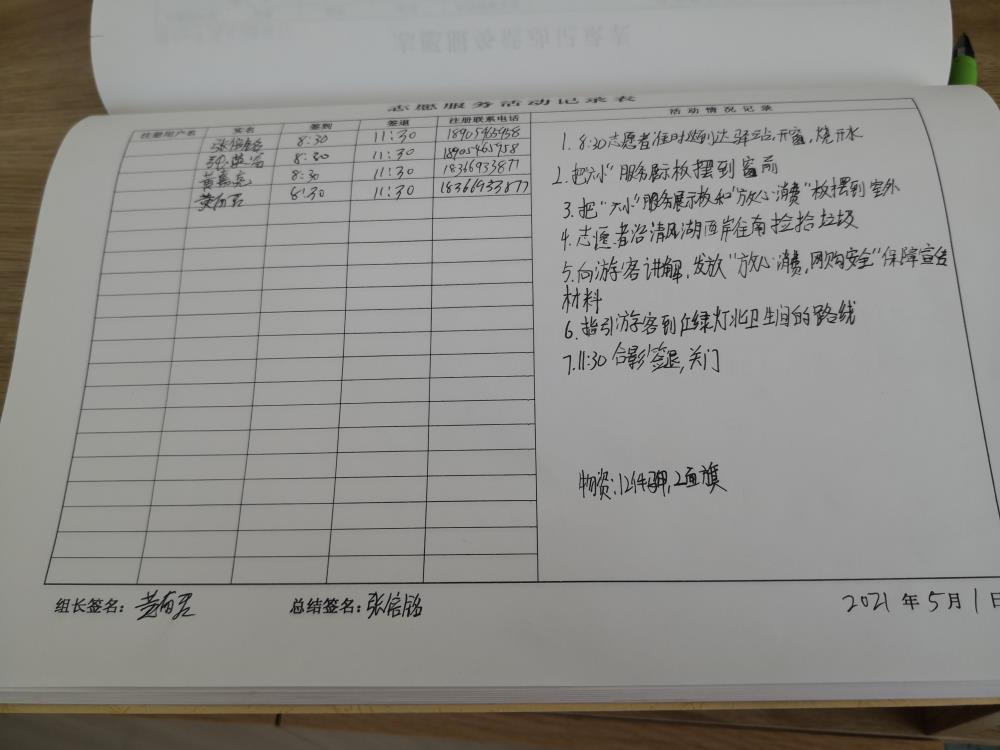 志愿服务活动记录表
注册用户名 实名 签到 签退 注册联系电话 活动情况记录
张信铭 8:30 11:30 18905465958
8:30 11:30 18905465958
黄嘉亮 8:30 11:30 18366933877
8:30 11:30 18366933877
1. 8:30志愿者准时达到达驿站,开窗,烧开水
2. 把"六小"服务展示板摆到窗前
3. 把"六小"服务展示板和"放心消费"板摆到室外
4. 志愿者沿清风湖西岸往南捡拾垃圾
5. 向游客讲解,发放"放心消费,网购安全"保障宣传
材料
6. 指引游客到红绿灯北卫生间的路线
7. 11:30 合影签退,关门
物资:12件马甲,2面旗
组长签名: 总结签名:张信铭 2021年5月1日